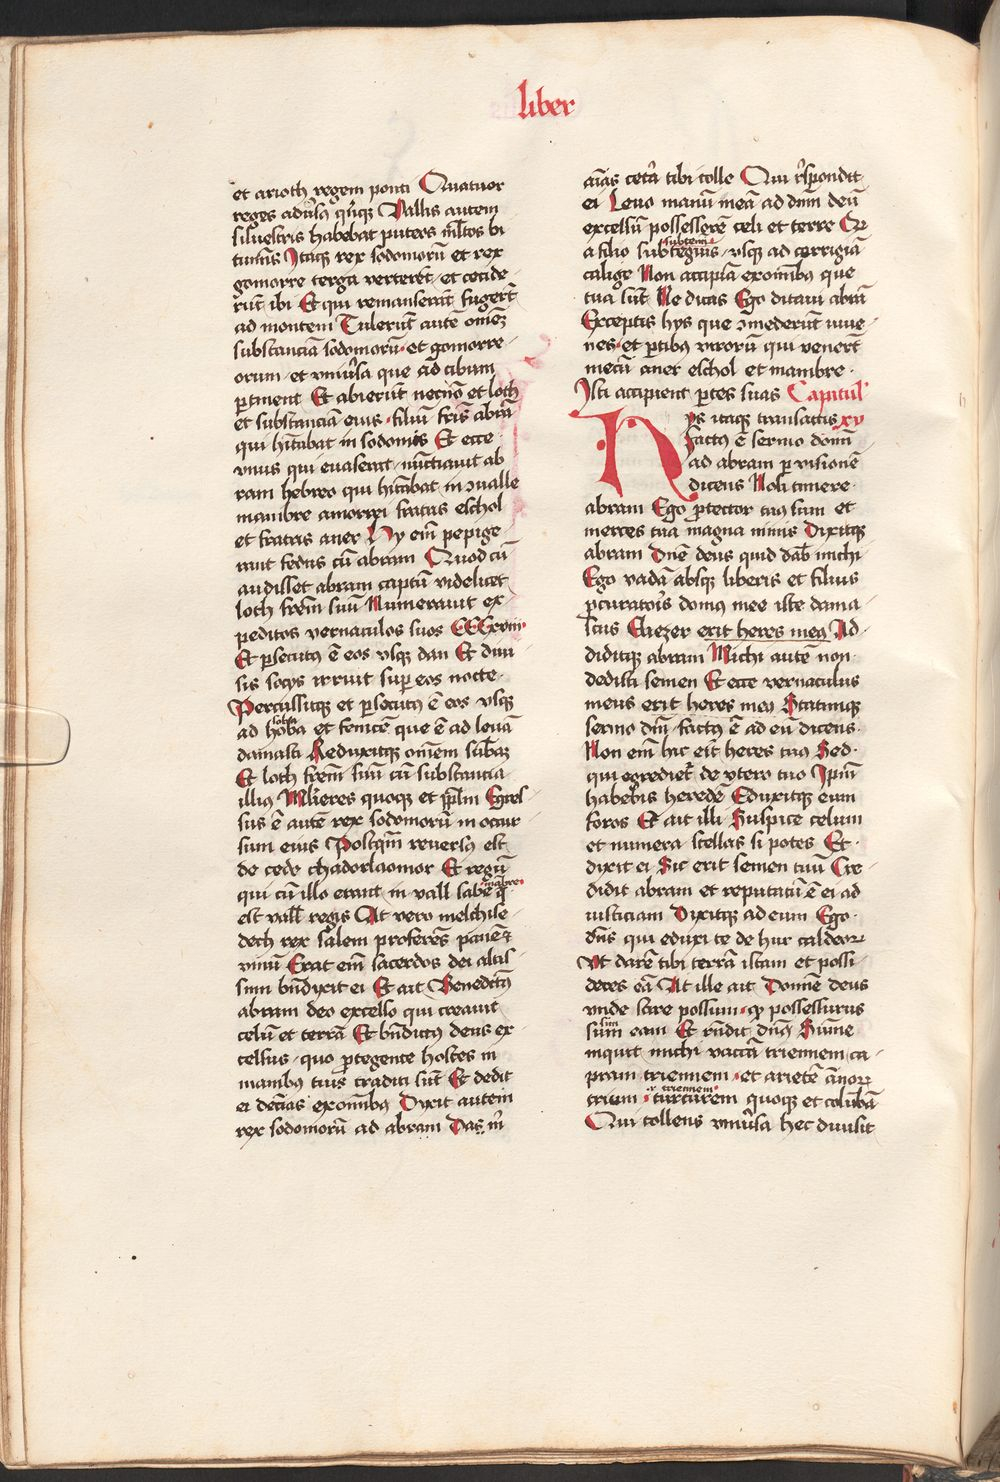 liber
et arioth regem ponti Quatuor
reges adu̓sꝰ qͥnqꝫ Vallis autem
siluestris habebat puteos ml̓tos bi
tumīs Itaqꝫ rex sodomorū et rex
gomorre terga verterēt et cecide
rūt ibi Et qui remanserāt fugerūt
ad montem Tulerūt autē om̄eꝫ
substanciā sodomorū et gomorre
orum et vniu̓sa que ad cibum
ꝑtinent Et abierūt necnō et loth
et substanciā eius filiū fr̄is abrā
qui hītabat in sodomis Et ecce
vnus qui euaserat nūctiauit ab
ram hebreo qui hītabat in ↄualle
mambre amorrei fratris eschol
et fratris aner Hy em̄ pepige
rāt fedus cū abram Quod cū
audisset abram captū videlicet
loth frēm suū Numerauit ex
peditos vernaculos suos CCCxviii
Et ꝑsecutꝰ ē eos vsqꝫ dan Et diui
sis socys irruit suꝑ eos nocte
Percussitqꝫ et ꝑsecutꝰ ē eos vsqꝫ
soba
ad hoba et fenicē que ē ad leuā
damasci Reduxitqꝫ om̄em sub̄aꝫ
Et loth frēm suū cū substancia
illiꝰ Ml̓ieres quoqꝫ et ppl̄m Egres
sus ē autē rex sodomorū in occur
sum eius Postqͣm reuersꝰ est
de cede chadorlaomor Et regū
mabre
qui cū illo erāt in vall sabe q̄
est vall̄ regis At vero melchise
dech rex salem proferēs panē ⁊
vinū Erat em̄ sacerdos dei altis
simi bn̄dixit ei Et ait Benedictꝰ
abram deo excelso qui creauit
celū et terrā Et bn̄dictꝰ deus ex
celsus quo ꝓtegente hostes in
manibꝰ tuis traditi sūt Et dedit
ei decīas ex om̄ibꝰ Dyxit autem
rex sodomorū ad abram Das m̓
aīas cetā tibi tolle Qui rn̄spondit
ei Leuo manū meā ad dn̄m deū
excelsū possessorē celi et terre Qꝫ
subtemīs
a filo subtegīs vsqꝫ ad corrigiā
calige Non accipiā ex om̄ibꝰ que
tua sūt Ne dicas Ego ditaui abrā
Exceptis hys que ↄmederūt iuue
nes et ꝑtibꝰ virorū qui venerūt
mecū aner eschol et mambre
Isti accipient ꝑtes suas Capitulꝰ
Hys itaqꝫ transactis xv
factꝰ ē sermo domī
ad abram per visionē
dicens Noli timere
abram Ego ꝓtector tuꝰ sum et
merces tua magna nimis Dixitqꝫ
abram Dn̄e deus quid dab̄ michi
Ego vadā absqꝫ liberis et filius
ꝓcuratoͥs domꝰ mee iste dama
scus Eliezer erit heres meꝰ Ad
diditqꝫ abram Michi autē non
dedisti semen Et ecce vernaculus
meus erit heres meꝰ Statimqꝫ
sermo dn̄i factꝰ ē ad eū dicens
Non em̄ hic eit̄ heres tuꝰ Sed
qui egrediet̄ de vtero tuo Ipm̄
habebis heredē Eduxitqꝫ eum
foros Et ait illi Suspice celum
et numera stellas si potes Et
dixit ei Sic erit semen tuū Cre
didit abram et reputatū ē ei ad
iusticiam Dyxitqꝫ ad eum Ego
dn̄s qui eduxi te de hur caldeoꝝ
Vt darē tibi terrā istam et possi
deres eā At ille ait Domine deus
vnde scire possum qꝫ possessurus
sim
sum eam Et rn̄dit dn̄s Sume
inquit michi vaccā triennem ca
pram triennem et arietē ānoꝝ
v triennem
trium turturem quoqꝫ et colūbā
Qui tollens vniu̓sa hec diuisit